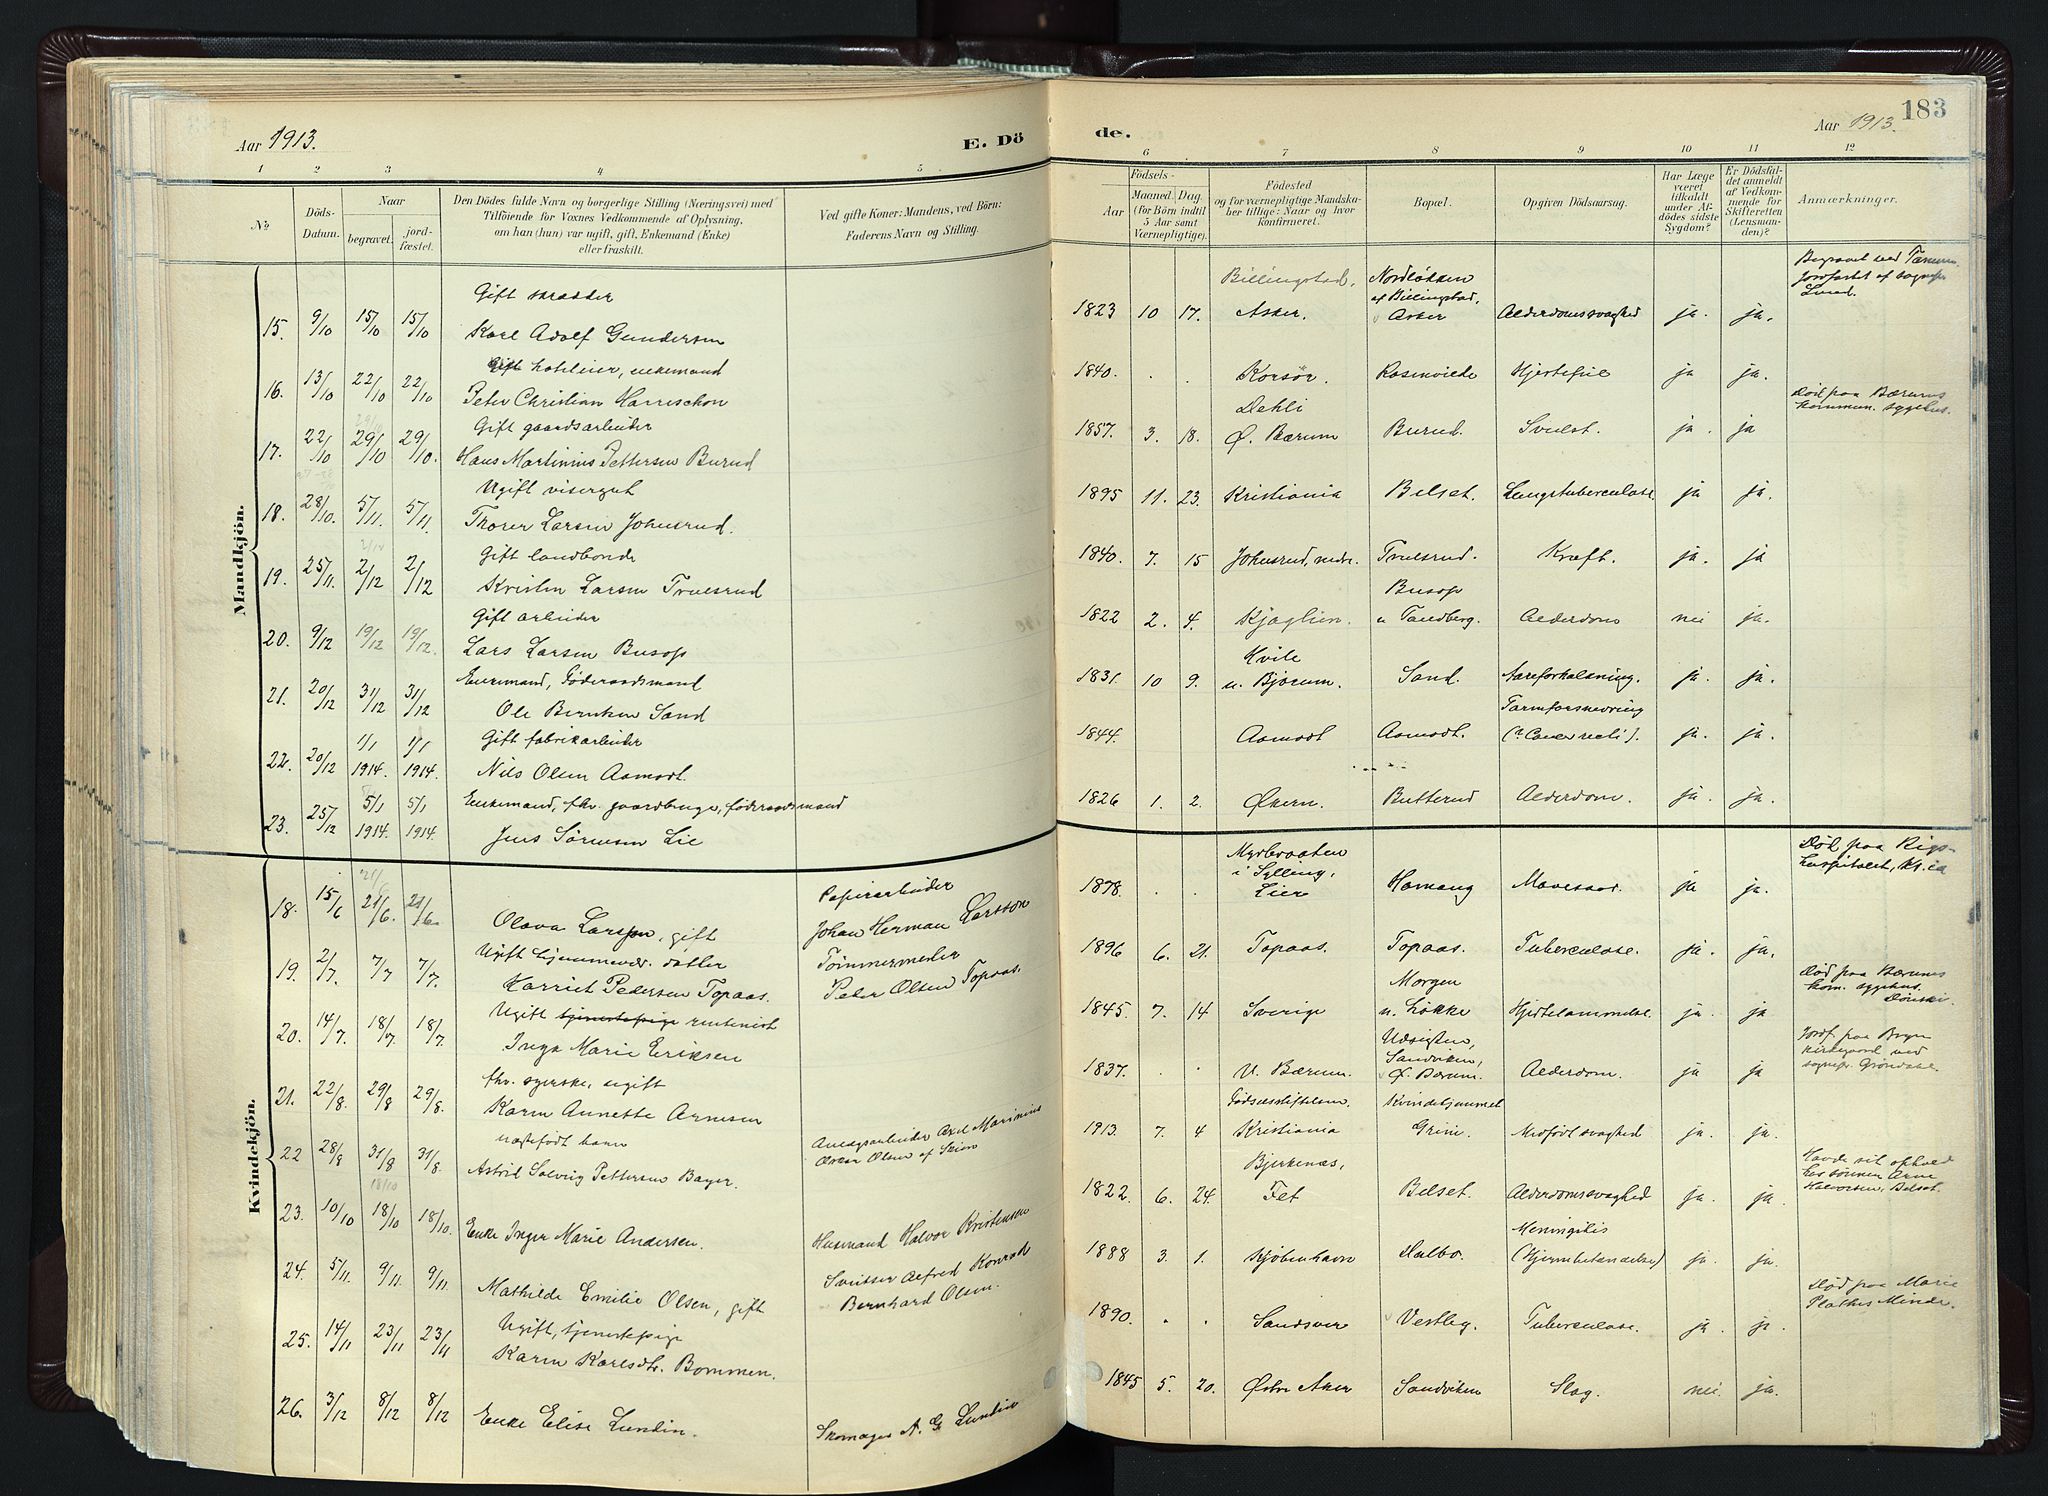 183
Aar 1913.
E. Dö
de.
Aar 1913.
1 2 3 4 5 6 7 8 9 10 11 12
№
Döds-
Datum.
Naar
begravet.
jord-
fæstet.
Den Dödes fulde Navn og borgerlige Stilling (Næringsvei) med
Tilföiende for Voxnes Vedkommende af Oplysning,
om han (hun) var ugift, gift, Enkemand (Enke)
eller fraskilt.
Ved gifte Koner: Mandens, ved Börn:
Faderens Navn og Stilling.
Födsels-
Aar
Maaned. Dag.
(for Börn indtil
5 Aar samt
Værnepligtige).
Födested
og for værnepligtige Mandska-
ber tillige: Naar og hvor
konfirmeret.
Bopæl.
Opgiven Dödsaarsag.
Har Læge
været
tilkaldt
under Af-
dödes sidste
Sygdom?
Er Dödsfal-
det anmeldt
af Vedkom-
mende for
Skifteretten
(Lensman-
den)?
Anmærkninger.
Mandkjön.
Gift skrædder Billingstad, Nordløkken Begravet ved Tanum.
af Billingstad, Jordfæstet af sognepr.
15. 9/10 15/10 15/10 Karl Adolf Gundersen 1823 10 17. Asker. Asker Alderdomssvaghed ja. ja. Lund.
Gift hoteleier, enkemand
16. 13/10 22/10 22/10 Peter Christian Harreschon 1840. . . Korsør. Rosenvilde Hjertefeil ja ja.
Gift gaardsarbeider Dehli Død paa Bærums
kommun. sygehus.
17. 22/10 29/10 29/10. Hans Martinius Pettersen Burud 1857. 3. 18. Ø. Bærum Burud. Svulst. ja. ja
Ugift visergut
18. 28/10. 5/11. 5/11. Thorer Larsen Johnsrud. 1895 11. 23. Kristiania Belset. Lungetuberculose. ja ja.
Gift landbonde
19. 25/11. 2/12 2/12 Kristen Larsen Truelsrud 1840. 7. 15 Johnsrud, nedre. Truelsrud. Kræft. ja. ja
Gift arbeider Busop
20. 9/12 19/12 19/12. Lars Larsen Busop 1822 2. 4. Kjaglien. u Tandberg. Alderdom nei ja.
Enkemand, Föderaadsmand Hvile
21. 20/12 31/12 31/12 Ole Berntsen Sand 1831. 10 9. u. Bjørum. Sand. Aareforkalkning. ja. ja.
Gift fabrikarbeider Tarmforsnevring
22. 20/12 1/1 1914. 1/1 1914. Nils Olsen Aamodt. 1844. Aamodt Aamodt. (? Cancer recti). ja. ja.
Enkemand, fhv. gaardbruger, föderaadsmand
23. 25/12 5/1 1914. 5/1 1914 Jens Sörensen Lie 1826 1. 2. Økern. Butterud Alderdom. ja. ja.
Kvindekjön.
Papirarbeider Myrbraaten Død paa Rigs-
i Sylling, hospitalet, Kr.ia
18. 15/6 21/6. 21/6. Olava Larsen, gift Johan Herman Larsson 1878. . . Lier Hamang Mavesaar. ja ja.
Ugift hjemmevær. datter Tømmermester
19. 2/7. 7/7 7/7. Harriet Pedersen Topaas. Peter Olsen Topaas. 1896 6. 21. Topaas. Topaas. Tuberculose. ja. ja.
Ugift tjenestepige rentenist Morgen Død paa Bærums
kom. sygehus.
20. 14/7. 18/7 18/7. Inga Marie Eriksen 1845. 7. 14 Sverige u. Løkke Hjertelammelse. ja. ja
fhv. syerske, ugift Udsigten, Jordf. paa Bryn
Sandviken, kirkegaard ved
21. 22/8. 29/8 29/8. Karen Annette Arnesen 1837. . . V. Bærum. Ø. Bærum. Alderdom. ja ja sognepr. Grøndahl.
uægtefödt barn Anlægsarbeider Axel Marinius Fødselsstiftelsen. Kvindehjemmet
22 28/8 31/8 31/8. Astrid Solveig Pettersen Bager. Oskar Olsen af Skien 1913. 7. 4 Kristiania Grini. Medfödt svaghed ja. ja.
Bjerkenæs, Havde sit ophold
hos sønnen Arne
23. 10/10 18/10 18/10. Enke Inger Marie Andersen. Husmand Halvor Kristensen 1822. 6. 24. Fet Belset. Alderdomssvaghed ja. ja. Halvorsen, Belset.
Meningitis
24. 5/11. 9/11. 9/11. Mathilde Emilie Olsen, gift Sveitser Alfred Konrad 1888 3. 1. Kjøbenhavn Dalbo. (Hjernebetændelse) ja. ja.
Bernhard Olsen.
Ugift, tjenestepige Død paa Marie
25. 14/11 23/11 23/11 Karen Karlsdtr. Bommen. 1890. . . Sandsver Vestleg. Tuberculose. ja. ja. Plathes Minde.
26. 3/12 8/12 8/12 Enke Elise Lundin. Skomager A. G. Lundin 1845 5. 20. Østre Aker Sandviken Slag. nei. ja.